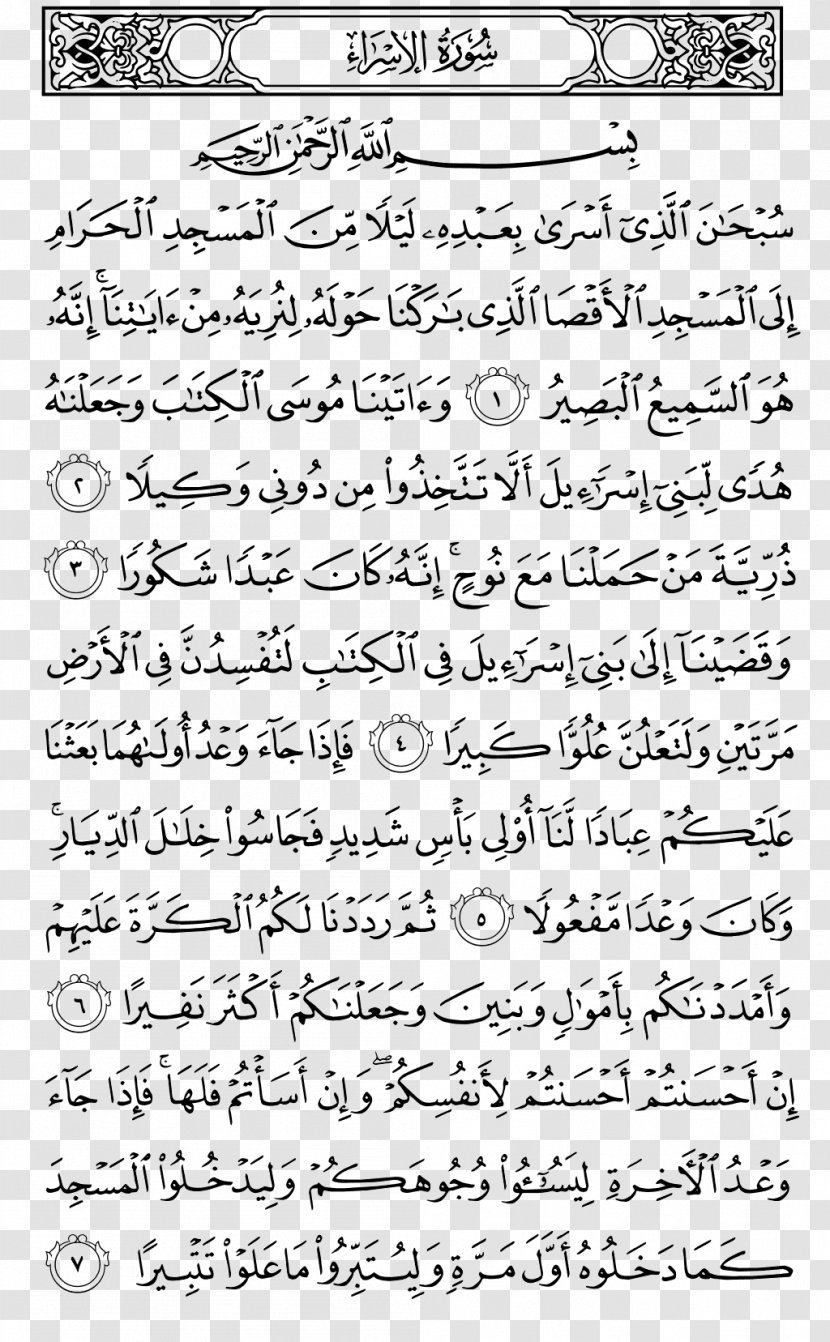 سُورَةُ الإِسْرَاءِ
بِسْمِ ٱللَّهِ ٱلرَّحْمَٰنِ ٱلرَّحِيمِ
سُبْحَٰنَ ٱلَّذِىٓ أَسْرَىٰ بِعَبْدِهِۦ لَيْلًا مِّنَ ٱلْمَسْجِدِ ٱلْحَرَامِ
إِلَى ٱلْمَسْجِدِ ٱلْأَقْصَا ٱلَّذِى بَٰرَكْنَا حَوْلَهُۥ لِنُرِيَهُۥ مِنْ ءَايَٰتِنَآ ۚ إِنَّهُۥ
هُوَ ٱلسَّمِيعُ ٱلْبَصِيرُ ١ وَءَاتَيْنَا مُوسَى ٱلْكِتَٰبَ وَجَعَلْنَٰهُ
هُدًى لِّبَنِىٓ إِسْرَٰٓءِيلَ أَلَّا تَتَّخِذُوا۟ مِن دُونِى وَكِيلًا ٢
ذُرِّيَّةَ مَنْ حَمَلْنَا مَعَ نُوحٍ ۚ إِنَّهُۥ كَانَ عَبْدًا شَكُورًا ٣
وَقَضَيْنَآ إِلَىٰ بَنِىٓ إِسْرَٰٓءِيلَ فِى ٱلْكِتَٰبِ لَتُفْسِدُنَّ فِى ٱلْأَرْضِ
مَرَّتَيْنِ وَلَتَعْلُنَّ عُلُوًّا كَبِيرًا ٤ فَإِذَا جَآءَ وَعْدُ أُولَىٰهُمَا بَعَثْنَا
عَلَيْكُمْ عِبَادًا لَّنَآ أُو۟لِى بَأْسٍ شَدِيدٍ فَجَاسُوا۟ خِلَٰلَ ٱلدِّيَارِ ۚ
وَكَانَ وَعْدًا مَّفْعُولًا ٥ ثُمَّ رَدَدْنَا لَكُمُ ٱلْكَرَّةَ عَلَيْهِمْ
وَأَمْدَدْنَٰكُم بِأَمْوَٰلٍ وَبَنِينَ وَجَعَلْنَٰكُمْ أَكْثَرَ نَفِيرًا ٦
إِنْ أَحْسَنتُمْ أَحْسَنتُمْ لِأَنفُسِكُمْ ۖ وَإِنْ أَسَأْتُمْ فَلَهَا ۚ فَإِذَا جَآءَ
وَعْدُ ٱلْأَخِرَةِ لِيَسُۥٓـُٔوا۟ وُجُوهَكُمْ وَلِيَدْخُلُوا۟ ٱلْمَسْجِدَ
كَمَا دَخَلُوهُ أَوَّلَ مَرَّةٍ وَلِيُتَبِّرُوا۟ مَا عَلَوْا۟ تَتْبِيرًا ٧